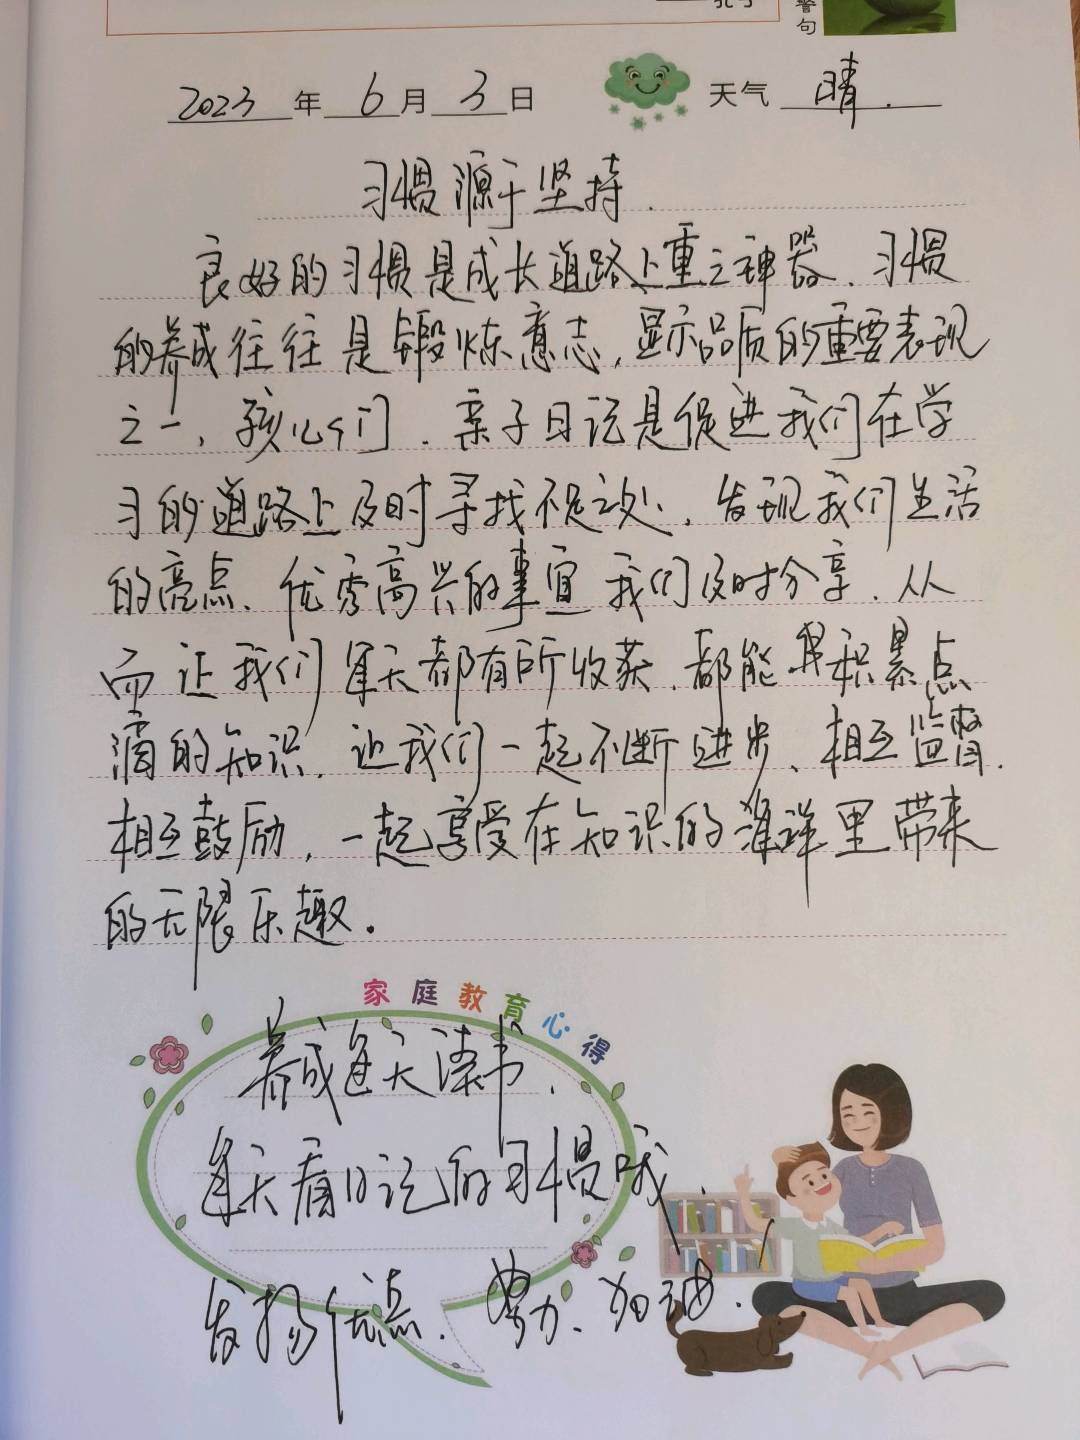 警句
2023年6月3日 天气 晴.
习惯源于坚持.
良好的习惯是成长道路上重之神器.习惯
的养成往往是锻炼意志,显示品质的重要表现
之一,孩儿们.亲子日记是促进我们在学
习的道路上及时寻找不足之处,发现我们生活
的亮点、优秀高兴的事宜我们及时分享.从
而让我们每天都有所收获.都能积累点
滴的知识.让我们一起不断进步、相互监督.
相互鼓励,一起享受在知识的海洋里带来
的无限乐趣.
家庭教育心得
养成每天读书.
每天看日记的习惯哦,
发扬优点.努力、加油.